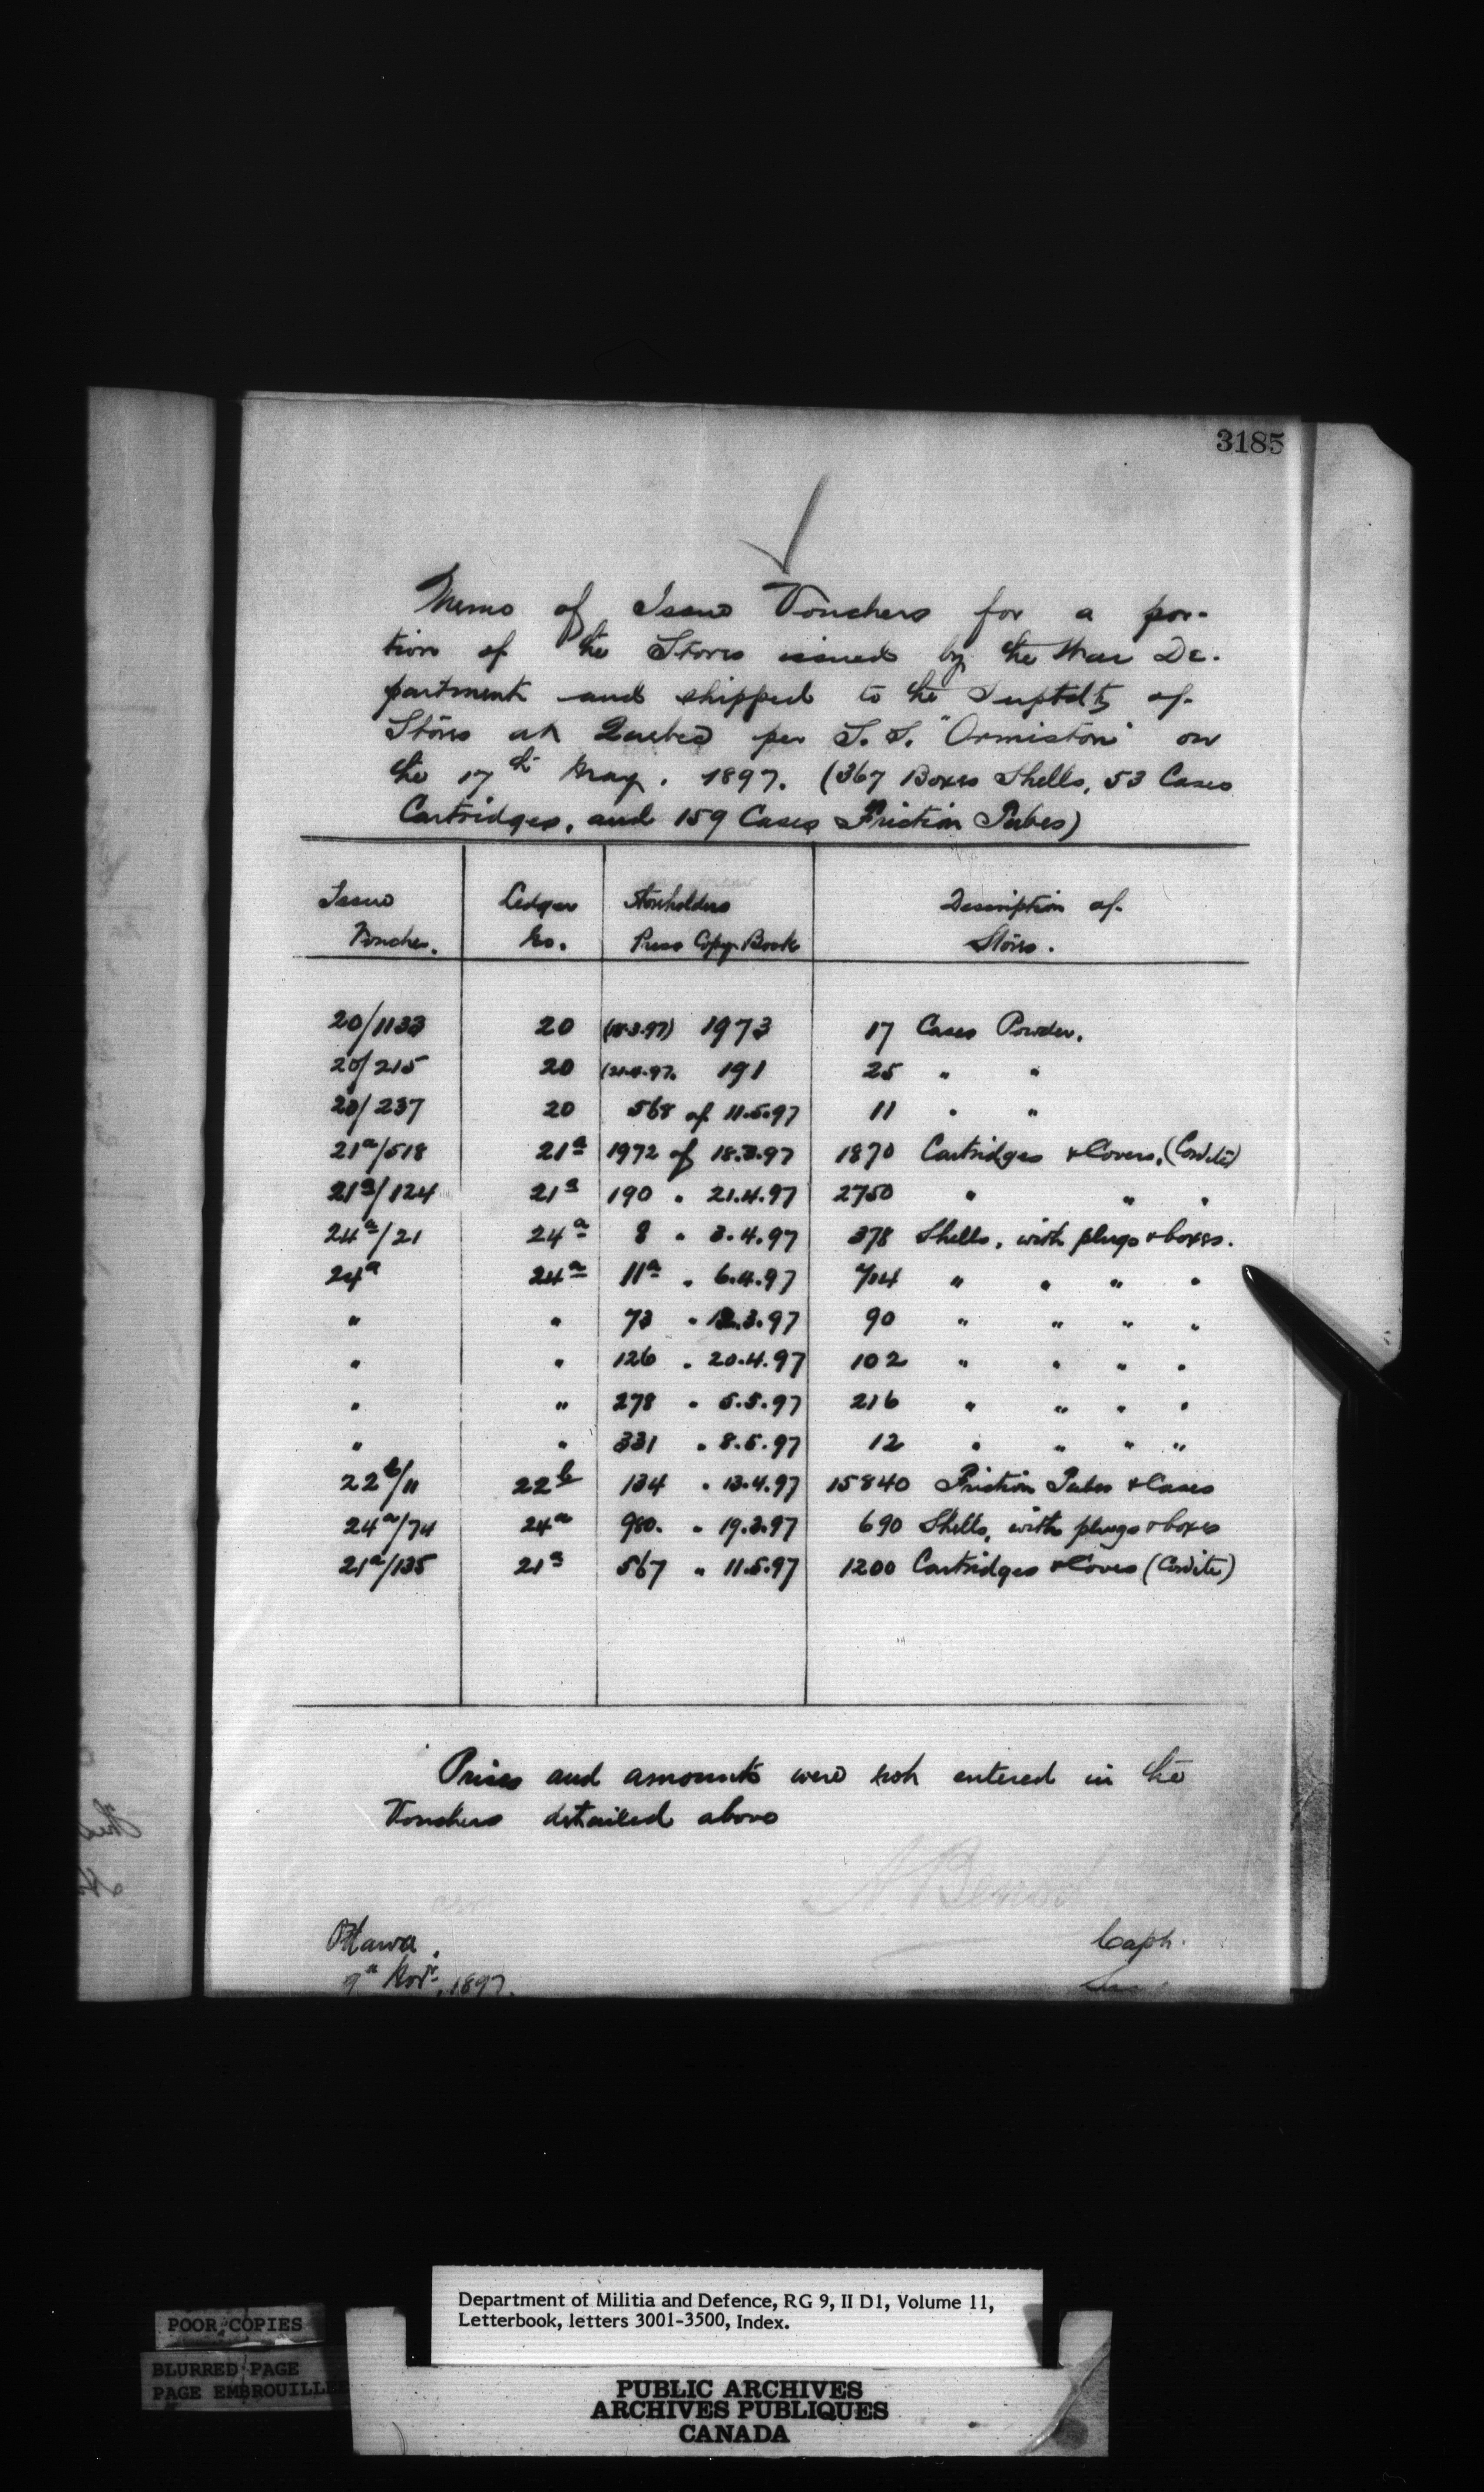 3185
Memo of Issue Vouchers for a por-
tion of the Stores issued by the War De-
partment and shipped to the Suptdt of
Stores at Quebec per S.S. "Ormiston" on
the 17th May. 1897. (367 Boxes Shells, 53 Cases
Cartridges, and 159 Cases Friction Tubes)
Issue Ledger Storeholders Description of
Voucher. No. Press Copy Book Stores.
20/1133 20 (18.3.97) 1973 17 Cases Powder.
20/215 20 (21.4.97. 191 25 " "
20/237 20 568 of 11.5.97 11 " "
21a/518 21a 1972 of 18.3.97 1870 Cartridges & Covers, (Cordite)
21a/124 21a 190 " 21.4.97 2750 " " "
24a/21 24a 8 " 3.4.97 378 Shells, with plugs & boxes.
24a 24a 11a " 6.4.97 714 " " " "
" " 73 " 3.97 90 " " " "
" " 126 " 20.4.97 102 " " " "
" " 278 " 5.5.97 216 " " " "
" " 331 " 8.5.97 12 " " " "
22b/11 22b 134 " 13.4.97 15840 Friction Tubes & Cases
24a/74 24a 980. " 19.3.97 690 Shells, with plugs & boxes
21a/135 21a 567 " 11.5.97 1200 Cartridges & Covers (Cordite)
Prices and amounts were not entered in the
Vouchers detailed above
Ottawa. Capt.
9th Novr. 1897.
Department of Militia and Defence, RG 9, II D1, Volume 11,
Letterbook, letters 3001-3500, Index.
POOR COPIES
BLURRED PAGE
PAGE EMBROUILLEE
PUBLIC ARCHIVES
ARCHIVES PUBLIQUES
CANADA